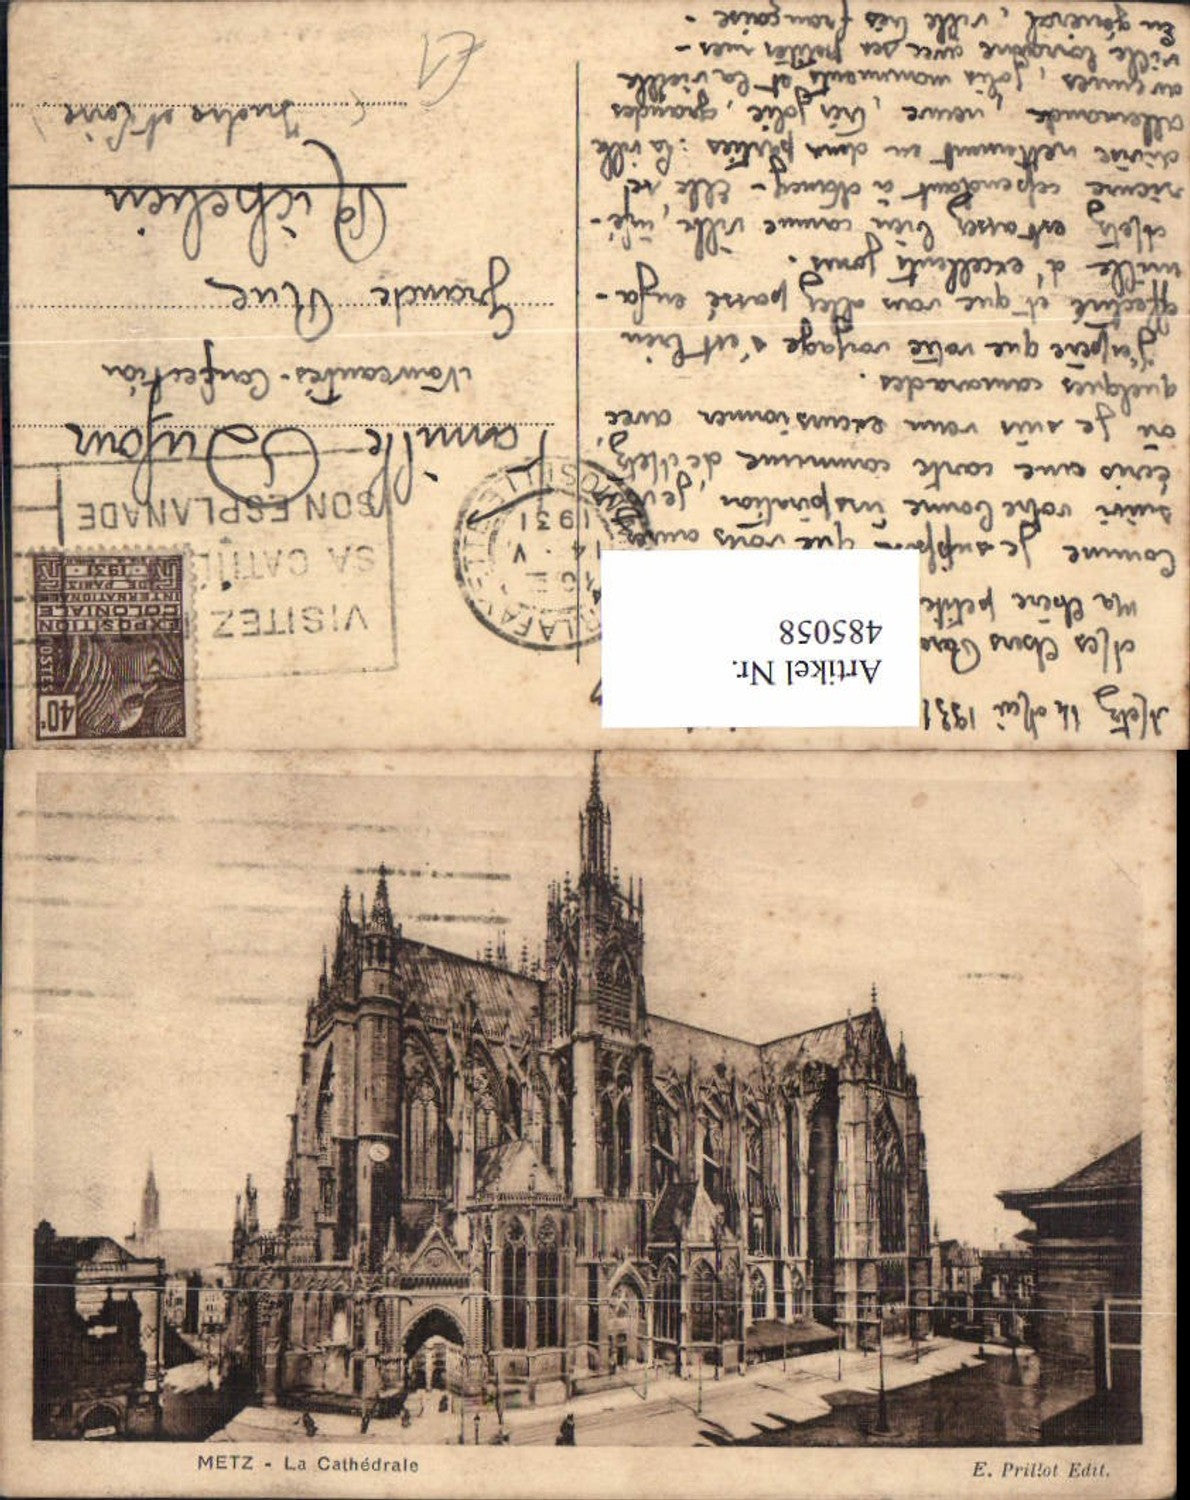 Metz 14 Mai 1931
Mes Chers
Ma Chère petite
Comme je suppose que vous aurez
suivi votre bonne inspiration, je vous
écris une carte commune de Metz,
où je suis venu excursionner avec
quelques camarades.
J'espère que votre voyage s'est bien
effectué et que vous allez passé en fa-
mille d'excellents jours.
Metz est assez bien comme ville, infé-
rieure cependant à Nancy - Elle se
divise nettement en deux parties : la ville
allemande, neuve, très jolie, grandes
avenues, jolis monuments et la vieille
ville lorraine avec ses petites rues
En général, ville très française -
Artikel Nr.
485058
40c
POSTES
EXPOSITION
COLONIALE
INTERNATIONALE
DE PARIS
1931
VISITEZ
SA CATH
SON ESPLANADE
14 · V
1931
Famille Dufour
Nouveautés-Confection
Grande Rue
Richelieu
(Indre et Loire)
METZ - La Cathédrale
E. Prillot Edit.